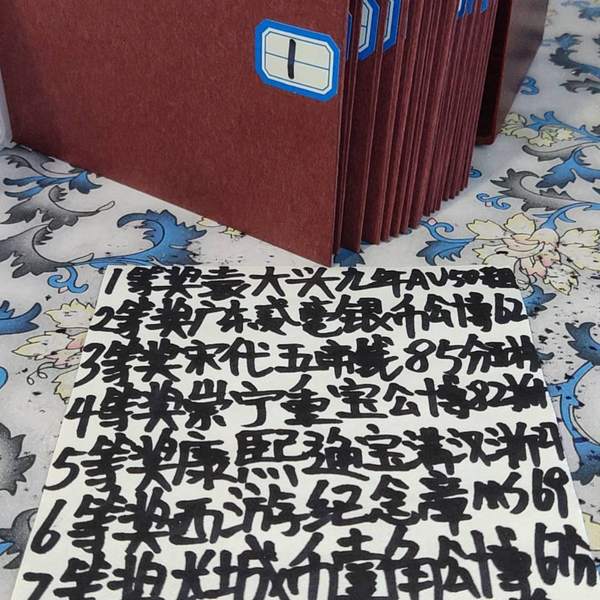 1
1等奖袁大头九年AU50
2等奖广东贰毫银币公博62
3等奖宋代五帝钱85分
4等奖崇宁重宝公博82
5等奖康熙通宝满汉浙
6等奖西游纪念章MS69
7等奖 城币壹角公博67